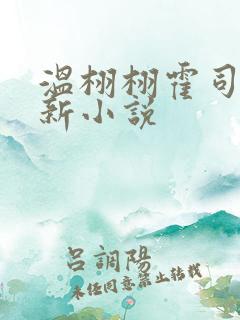 温栩栩霍司
新小説
呂調陽
未任同意禁止转载